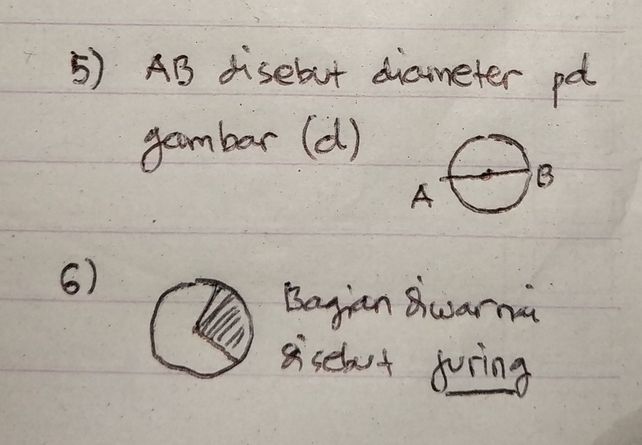 5) AB disebut diameter pd
gambar (d)
A B
6)
Bagian diwarnai
disebut juring